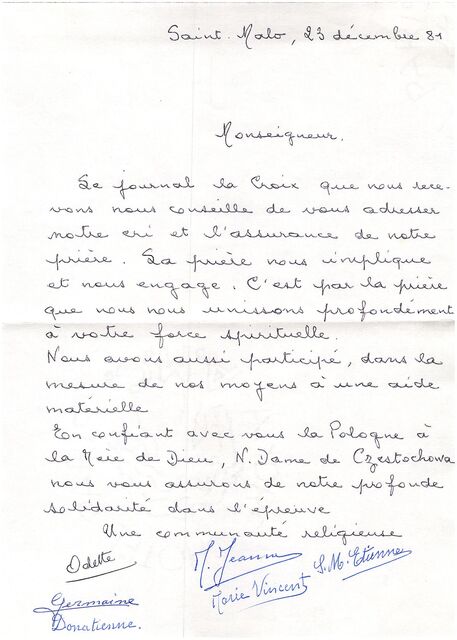 Saint-Malo, 23 décembre 81
Monseigneur.
Le journal la Croix que nous rece-
vons nous conseille de vous adresser
notre cri et l'assurance de notre
prière. La prière nous implique
et nous engage. C'est par la prière
que nous nous unissons profondément
à votre force spirituelle.
Nous avons aussi participé, dans la
mesure de nos moyens à une aide
matérielle
En confiant avec vous la Pologne à
la Mère de Dieu, N. Dame de Częstochowa
nous vous assurons de notre profonde
solidarité dans l'épreuve
Une communauté religieuse
Odette M. Jeanne S. M. Etienne
Germaine Marie Vincent
Donatienne.